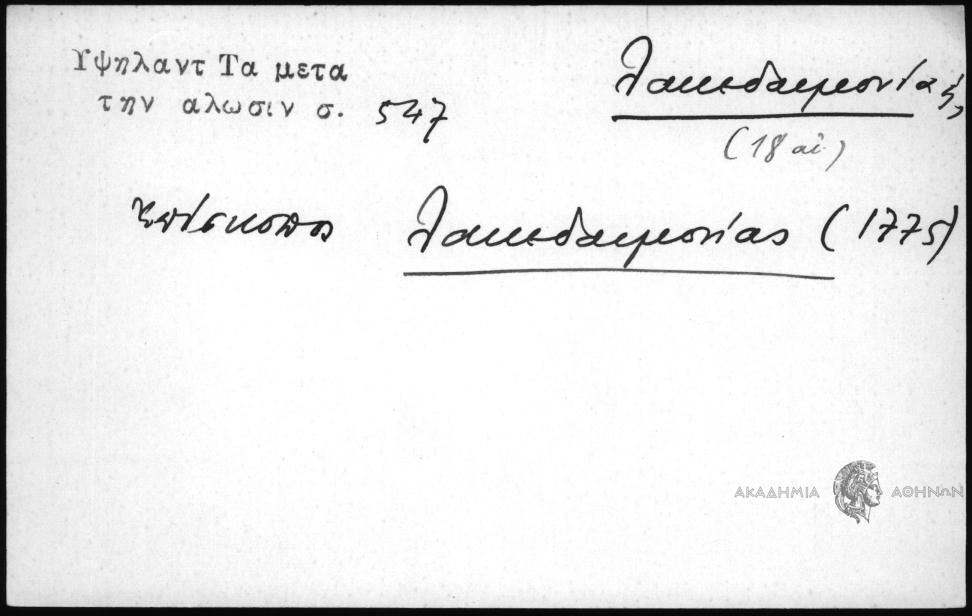 Υψηλαντ Τα μετα
την αλωσιν σ. 547
Λακεδαιμονία, ἡ
(18 αἰ.)
Ἐπίσκοπος Λακεδαιμονίας (1775)
ΑΚΑΔΗΜΙΑ ΑΘΗΝΩΝ